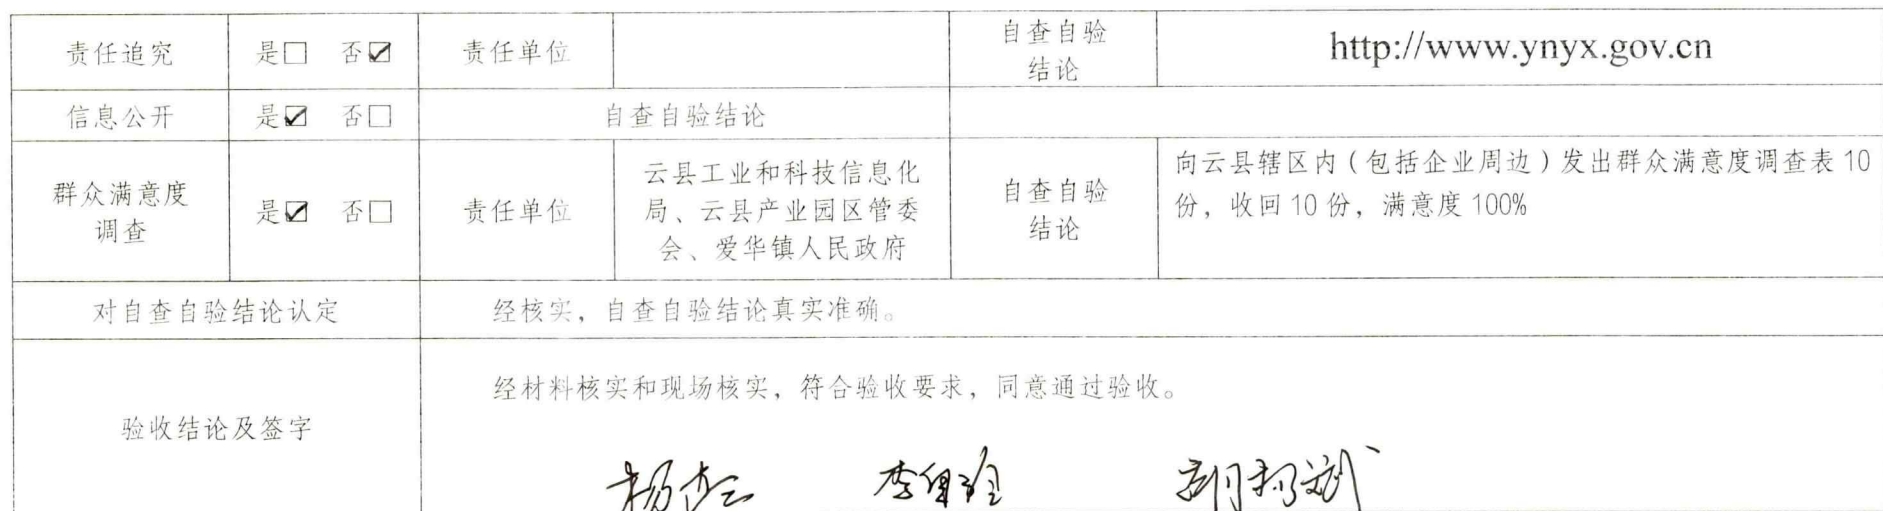 责任追究 是□ 否☑ 责任单位 自查自验 http://www.ynyx.gov.cn
结论
信息公开 是☑ 否□ 自查自验结论
群众满意度
调查
是☑ 否□
责任单位
云县工业和科技信息化
局、云县产业园区管委
会、爱华镇人民政府
自查自验
结论
向云县辖区内（包括企业周边）发出群众满意度调查表10
份，收回10份，满意度100%
对自查自验结论认定 经核实，自查自验结论真实准确。
验收结论及签字
经材料核实和现场核实，符合验收要求，同意通过验收。